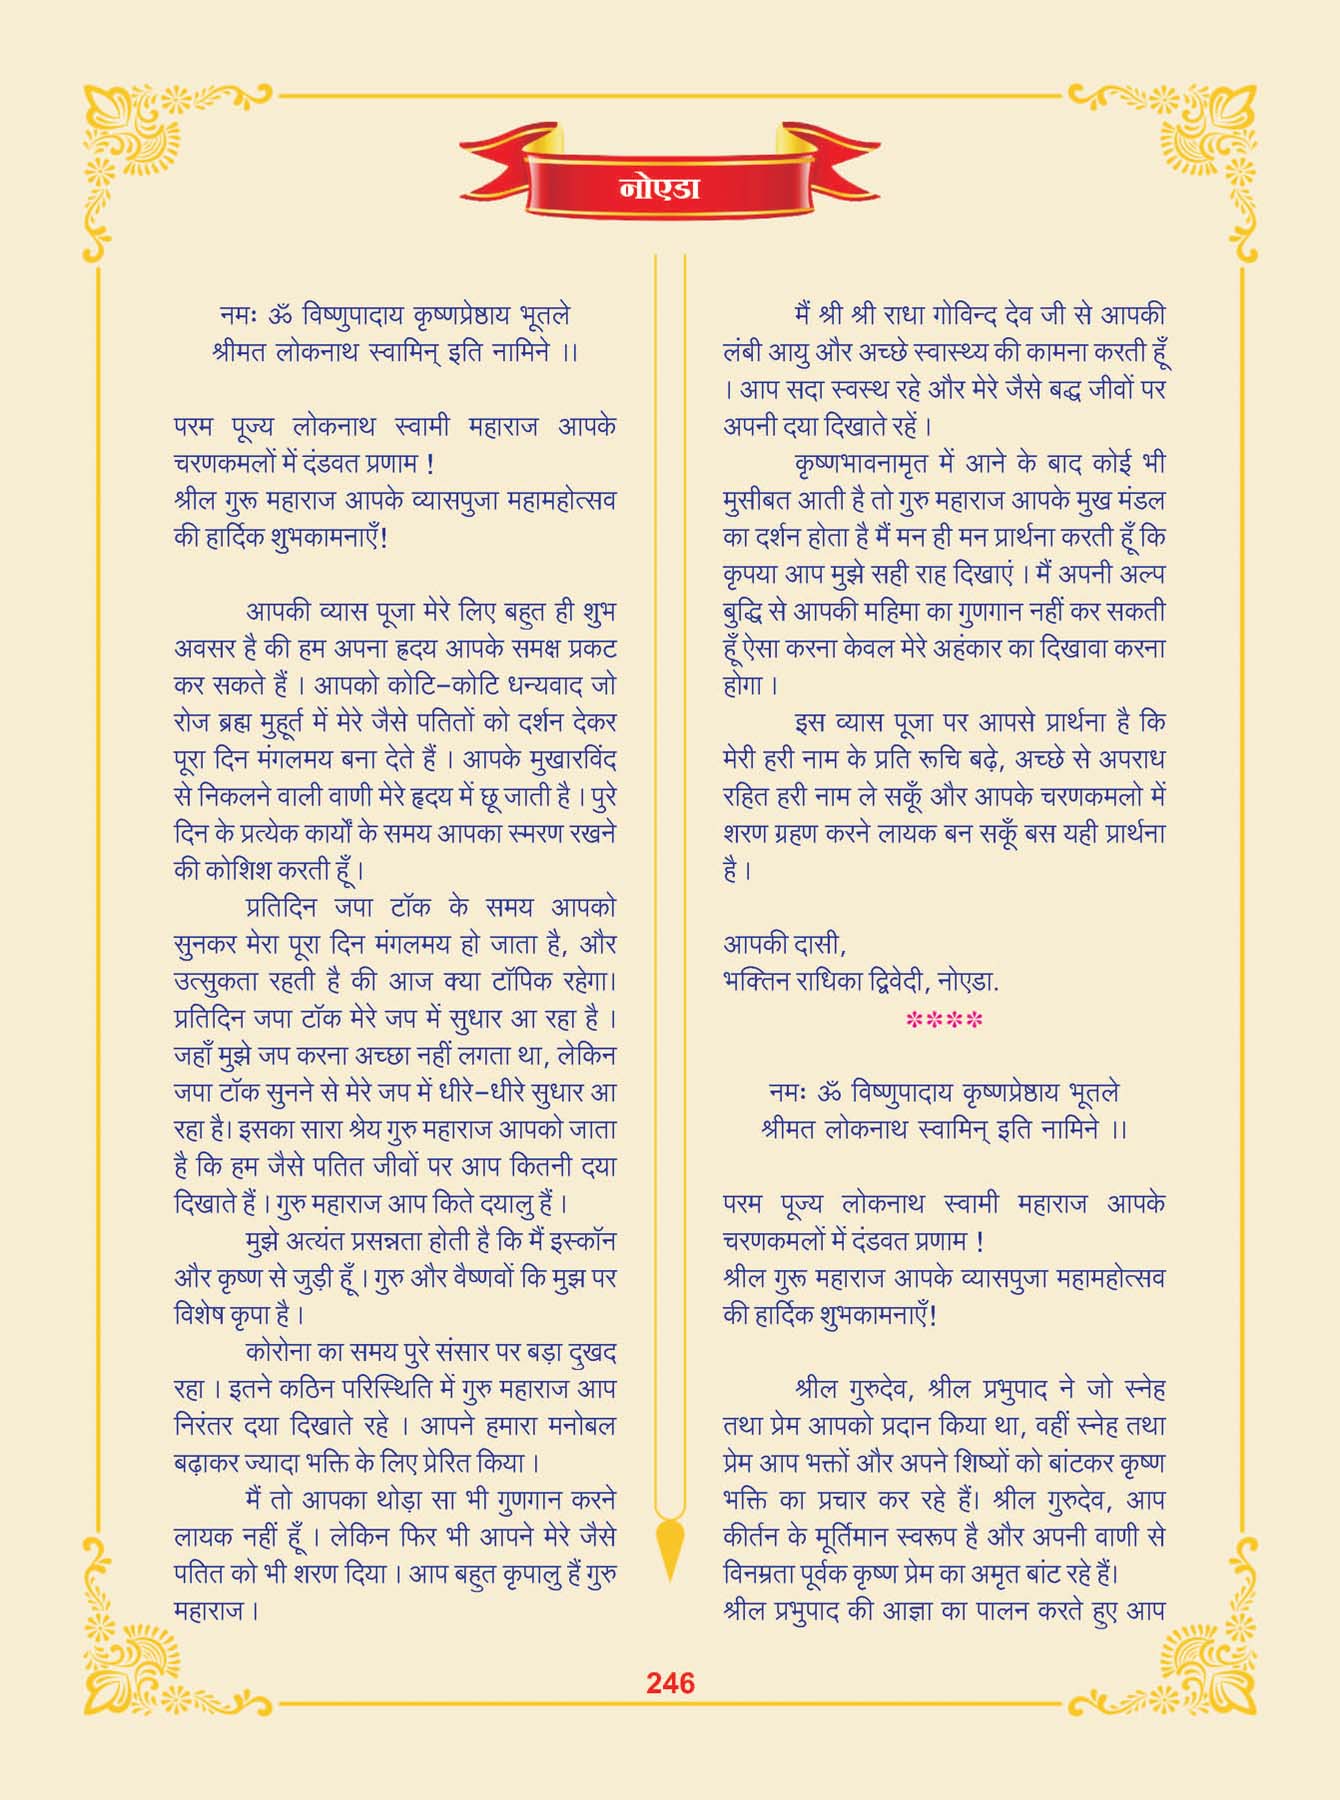 नोएडा
नमः ॐ विष्णुपादाय कृष्णप्रेष्ठाय भूतले
श्रीमत लोकनाथ स्वामिन् इति नामिने ।।
परम पूज्य लोकनाथ स्वामी महाराज आपके
चरणकमलों में दंडवत प्रणाम !
श्रील गुरू महाराज आपके व्यासपुजा महामहोत्सव
की हार्दिक शुभकामनाएँ!
आपकी व्यास पूजा मेरे लिए बहुत ही शुभ
अवसर है की हम अपना ह्रदय आपके समक्ष प्रकट
कर सकते हैं । आपको कोटि-कोटि धन्यवाद जो
रोज ब्रह्म मुहूर्त में मेरे जैसे पतितों को दर्शन देकर
पूरा दिन मंगलमय बना देते हैं । आपके मुखारविंद
से निकलने वाली वाणी मेरे हृदय में छू जाती है । पुरे
दिन के प्रत्येक कार्यों के समय आपका स्मरण रखने
की कोशिश करती हूँ ।
प्रतिदिन जपा टॉक के समय आपको
सुनकर मेरा पूरा दिन मंगलमय हो जाता है, और
उत्सुकता रहती है की आज क्या टॉपिक रहेगा।
प्रतिदिन जपा टॉक मेरे जप में सुधार आ रहा है ।
जहाँ मुझे जप करना अच्छा नहीं लगता था, लेकिन
जपा टॉक सुनने से मेरे जप में धीरे-धीरे सुधार आ
रहा है। इसका सारा श्रेय गुरु महाराज आपको जाता
है कि हम जैसे पतित जीवों पर आप कितनी दया
दिखाते हैं । गुरु महाराज आप किते दयालु हैं ।
मुझे अत्यंत प्रसन्नता होती है कि मैं इस्कॉन
और कृष्ण से जुड़ी हूँ । गुरु और वैष्णवों कि मुझ पर
विशेष कृपा है ।
कोरोना का समय पुरे संसार पर बड़ा दुखद
रहा । इतने कठिन परिस्थिति में गुरु महाराज आप
निरंतर दया दिखाते रहे । आपने हमारा मनोबल
बढ़ाकर ज्यादा भक्ति के लिए प्रेरित किया ।
मैं तो आपका थोड़ा सा भी गुणगान करने
लायक नहीं हूँ । लेकिन फिर भी आपने मेरे जैसे
पतित को भी शरण दिया । आप बहुत कृपालु हैं गुरु
महाराज ।
मैं श्री श्री राधा गोविन्द देव जी से आपकी
लंबी आयु और अच्छे स्वास्थ्य की कामना करती हूँ
। आप सदा स्वस्थ रहे और मेरे जैसे बद्ध जीवों पर
अपनी दया दिखाते रहें ।
कृष्णभावनामृत में आने के बाद कोई भी
मुसीबत आती है तो गुरु महाराज आपके मुख मंडल
का दर्शन होता है मैं मन ही मन प्रार्थना करती हूँ कि
कृपया आप मुझे सही राह दिखाएं । मैं अपनी अल्प
बुद्धि से आपकी महिमा का गुणगान नहीं कर सकती
हूँ ऐसा करना केवल मेरे अहंकार का दिखावा करना
होगा ।
इस व्यास पूजा पर आपसे प्रार्थना है कि
मेरी हरी नाम के प्रति रूचि बढ़े, अच्छे से अपराध
रहित हरी नाम ले सकूँ और आपके चरणकमलो में
शरण ग्रहण करने लायक बन सकूँ बस यही प्रार्थना
है ।
आपकी दासी,
भक्तिन राधिका द्विवेदी, नोएडा.
****
नमः ॐ विष्णुपादाय कृष्णप्रेष्ठाय भूतले
श्रीमत लोकनाथ स्वामिन् इति नामिने ।।
परम पूज्य लोकनाथ स्वामी महाराज आपके
चरणकमलों में दंडवत प्रणाम !
श्रील गुरू महाराज आपके व्यासपुजा महामहोत्सव
की हार्दिक शुभकामनाएँ!
श्रील गुरुदेव, श्रील प्रभुपाद ने जो स्नेह
तथा प्रेम आपको प्रदान किया था, वहीं स्नेह तथा
प्रेम आप भक्तों और अपने शिष्यों को बांटकर कृष्ण
भक्ति का प्रचार कर रहे हैं। श्रील गुरुदेव, आप
कीर्तन के मूर्तिमान स्वरूप है और अपनी वाणी से
विनम्रता पूर्वक कृष्ण प्रेम का अमृत बांट रहे हैं।
श्रील प्रभुपाद की आज्ञा का पालन करते हुए आप
246